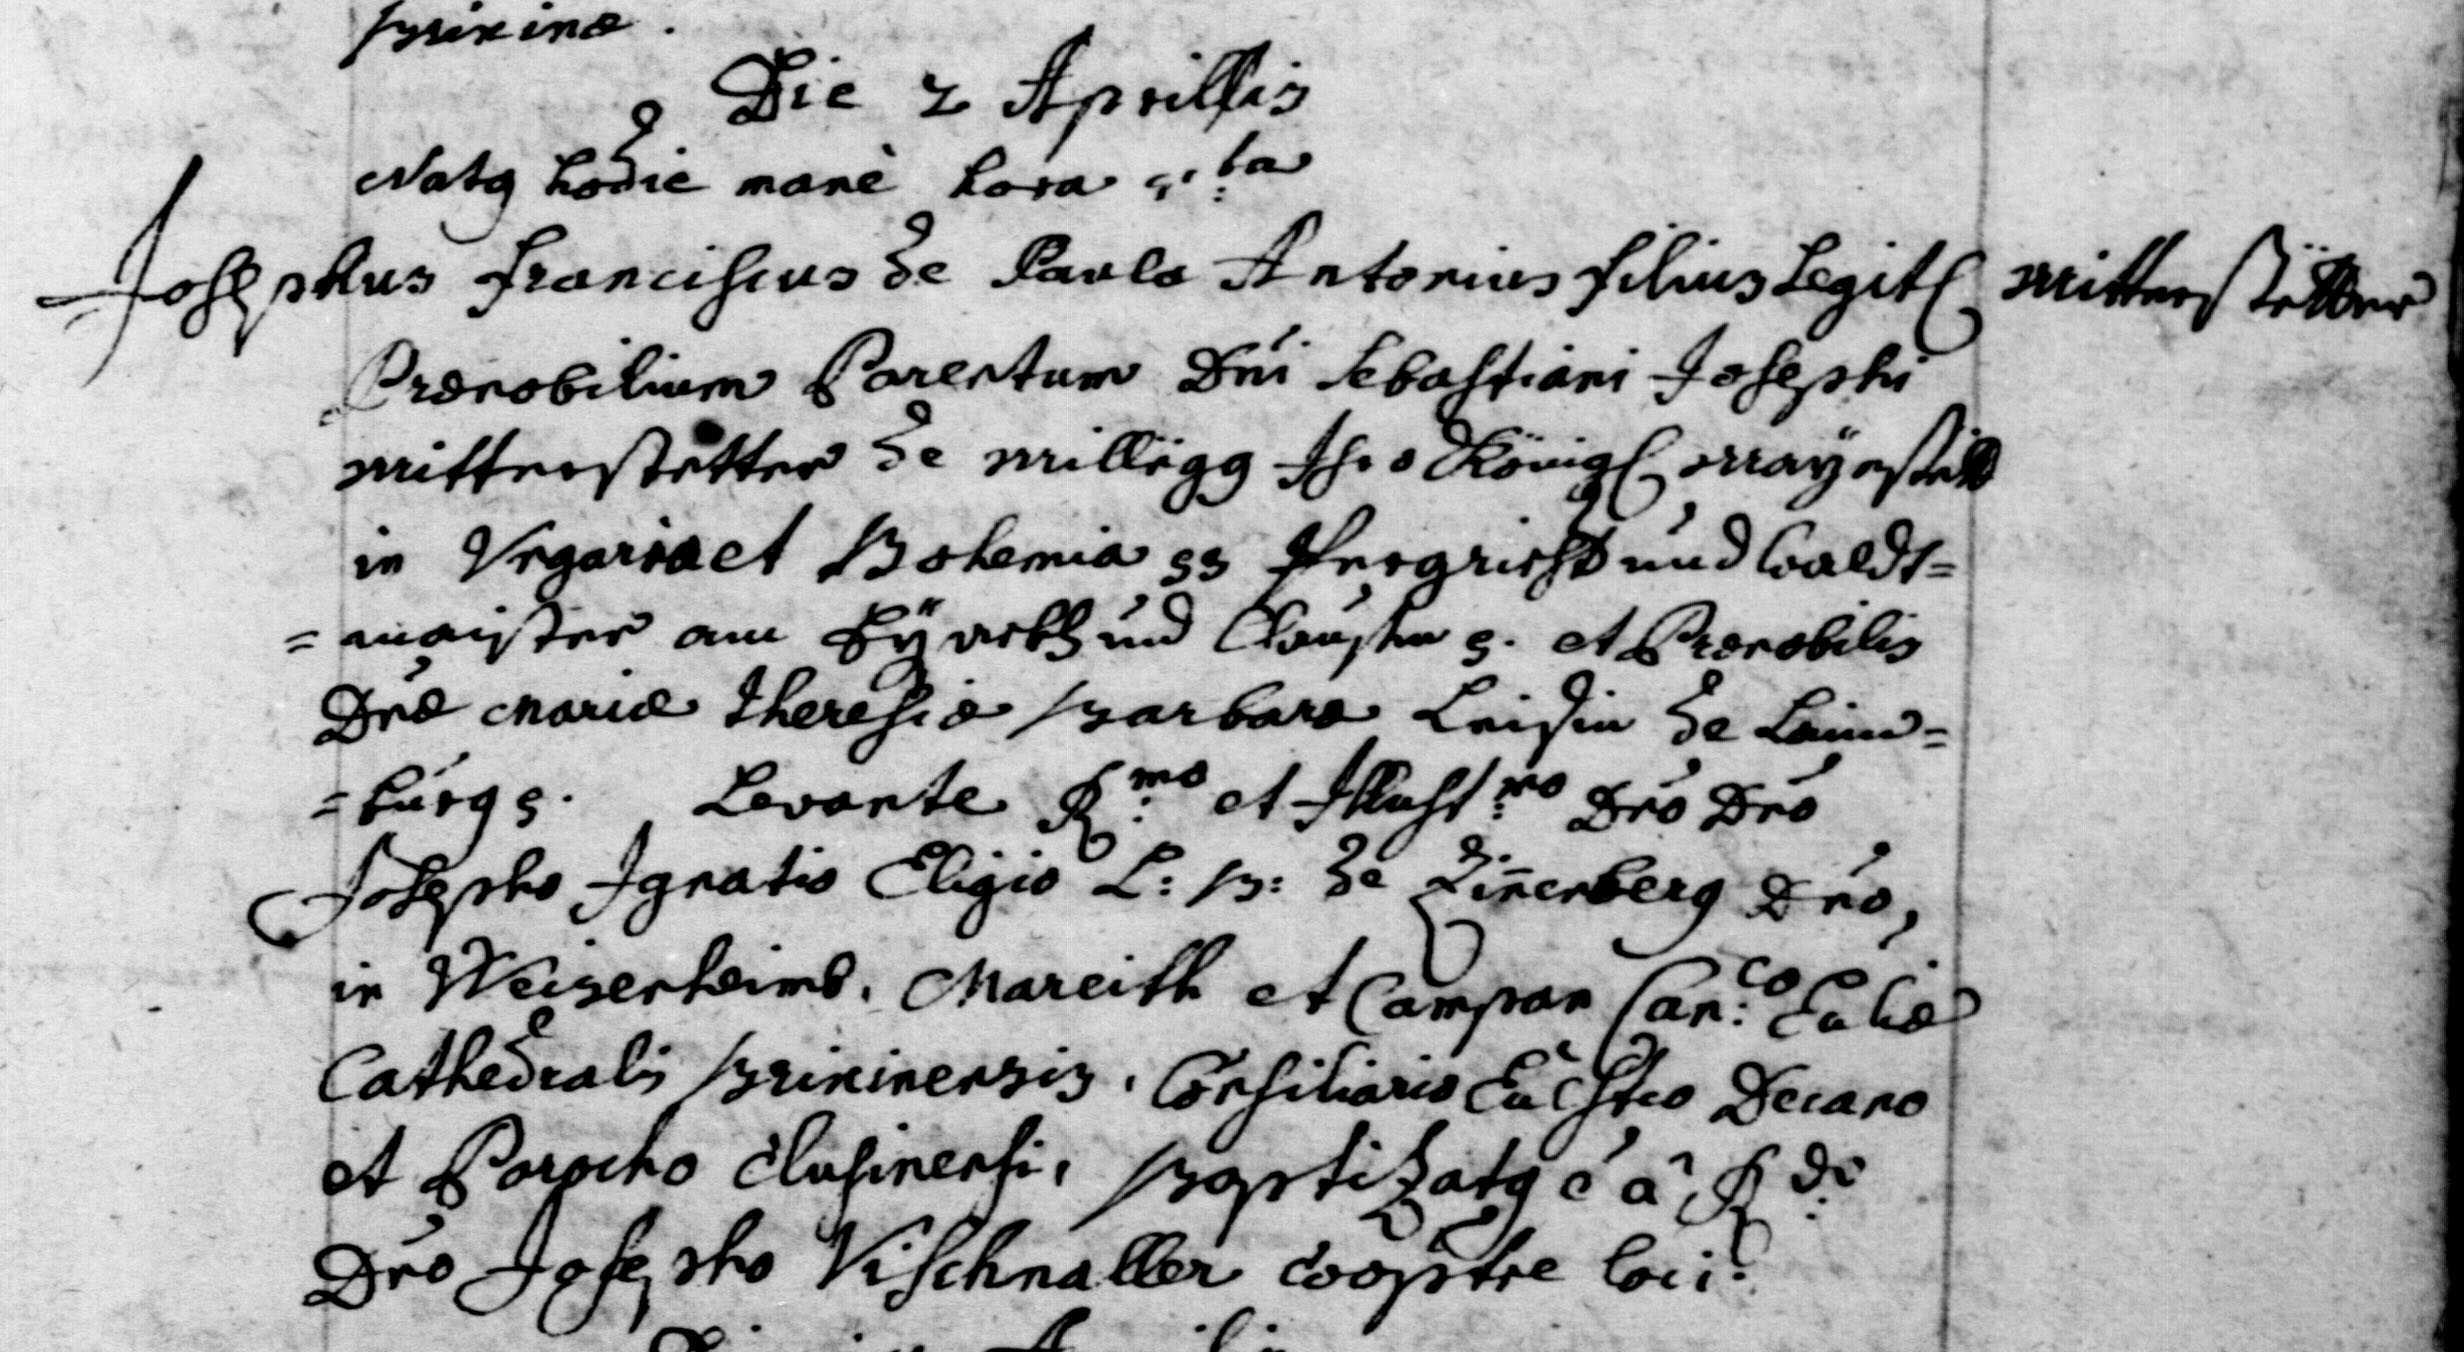 Brixinae.
Die 2 Aprillis
Natq hodie mane hora 5.ta
Josephus Franciscus de Paula Antonius filius Legitl Mitterstötter
Praenobilium Parentum Dni Sebastiani Josephi
Mitterstetter de Millegg Ihro Königl Mayestät
in Ungaria et Bohemia Pergricht und Waldt=
=maister am Eysackh und Clausen et Praenobilis
Dnae Mariae Theresiae Barbara Leisin de Laim=
=burg Levante Rmo et Illustmo Dno Dno
Josepho Ignatio Eligio L: B: de Zinenberg Dno,
in Weiserheimb, Mareith et Campan Can:co Eccliae
Cathedralis Brixinensis, Consiliario Ecclstico Decano
et Parocho Clusinensi, Baptizatq e a R do:
Dno Josepho Vischnaller Cooptre loci.